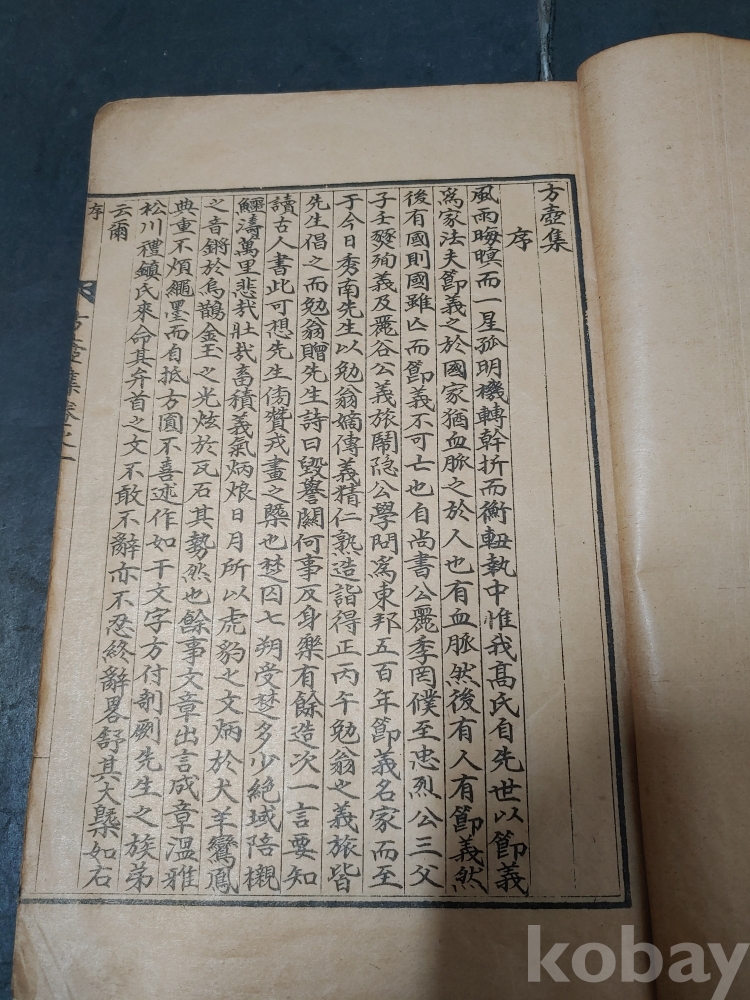 方壺集
序
風雨晦暝而一星孤明機轉幹折而衡軸執中惟我髙氏自先世以節義
爲家法夫節義之於國家猶血脈之於人也有血脈然後有人有節義然
後有國則國雖亾而節義不可亡也自尚書公麗季罔僕至忠烈公三父
子壬燹殉義及麗谷公義旅鬧隐公學問爲東邦五百年節義名家而至
于今日秀南先生以勉翁嫡傳義精仁熟造詣得正丙午勉翁之義旅皆
先生倡之而勉翁贈先生詩曰毁譽關何事反身樂有餘造次一言要知
讀古人書此可想先生傍贊戎畫之槩也楚囚七朔受楚多少絶域陪櫬
鱷濤萬里悲㢤壯㢤畜積義氣炳烺日月所以虎豹之文炳於犬羊鸞鳳
之音鏘於烏鵲金玉之光炫於瓦石其勢然也餘事文章出言成章溫雅
典重不煩繩墨而自抵方圓不喜述作如干文字方付剞劂先生之族弟
松川禮鎮氏來命其弁首之文不敢不辭亦不忍終辭畧舒其大槩如右
云爾
序
方壺集卷之一
kobay